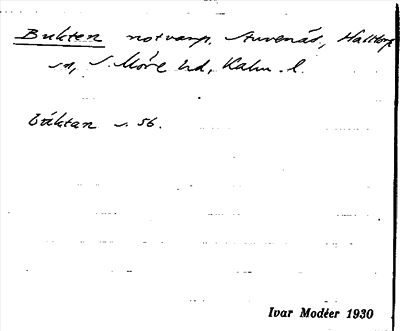 Bukten notvarp. Arvenäs, Halltorp
sn, S. Möre hd, Kalm. l.
bùktan s. 56.
Ivar Modéer 1930